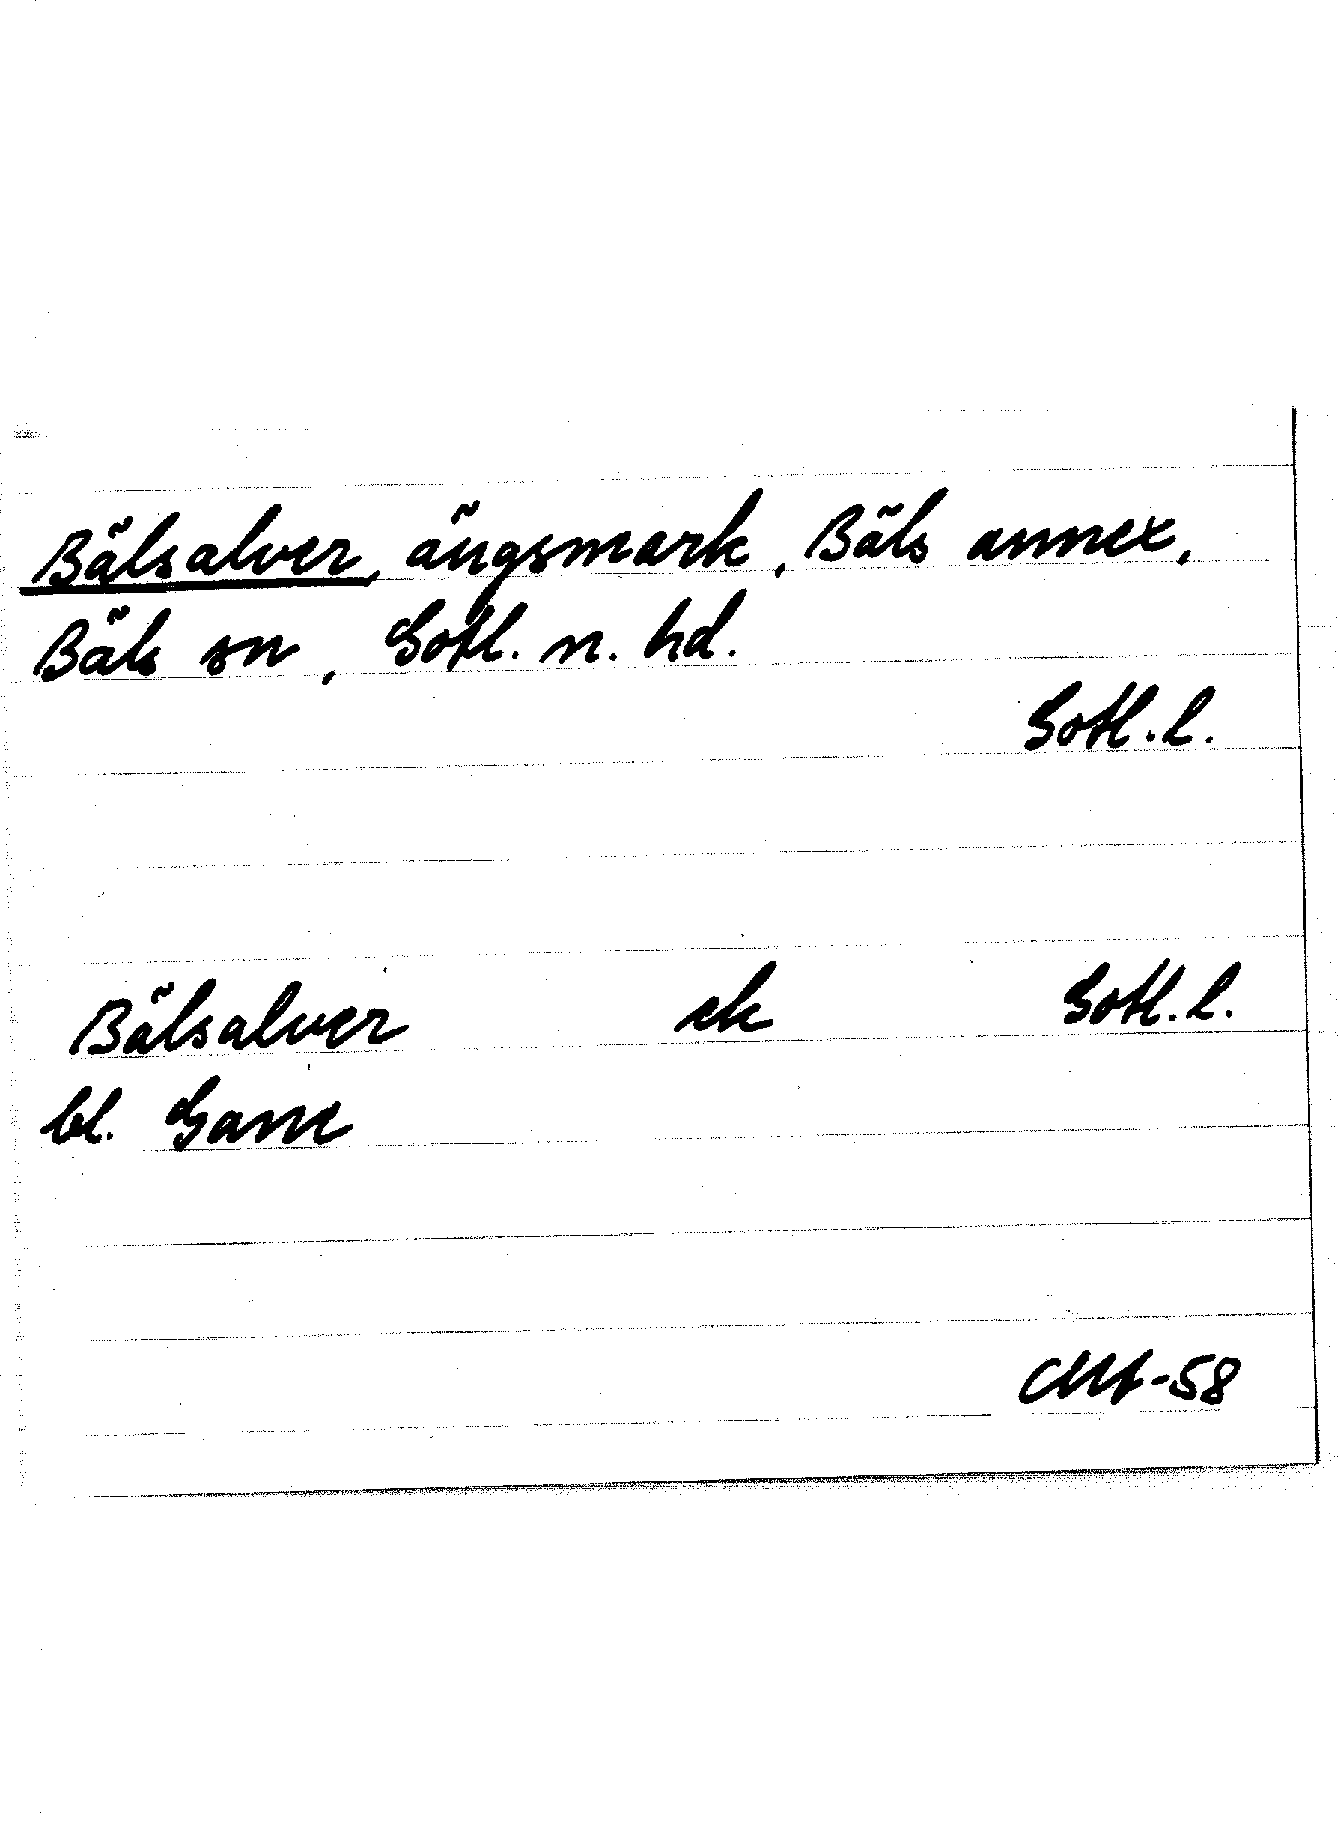 Bälsalver, ängsmark, Bäls annex,
Bäls sn, Gotl. n. hd.
Gotl. l.
Bälsalver ek Gotl. l.
bl. Gane
-58